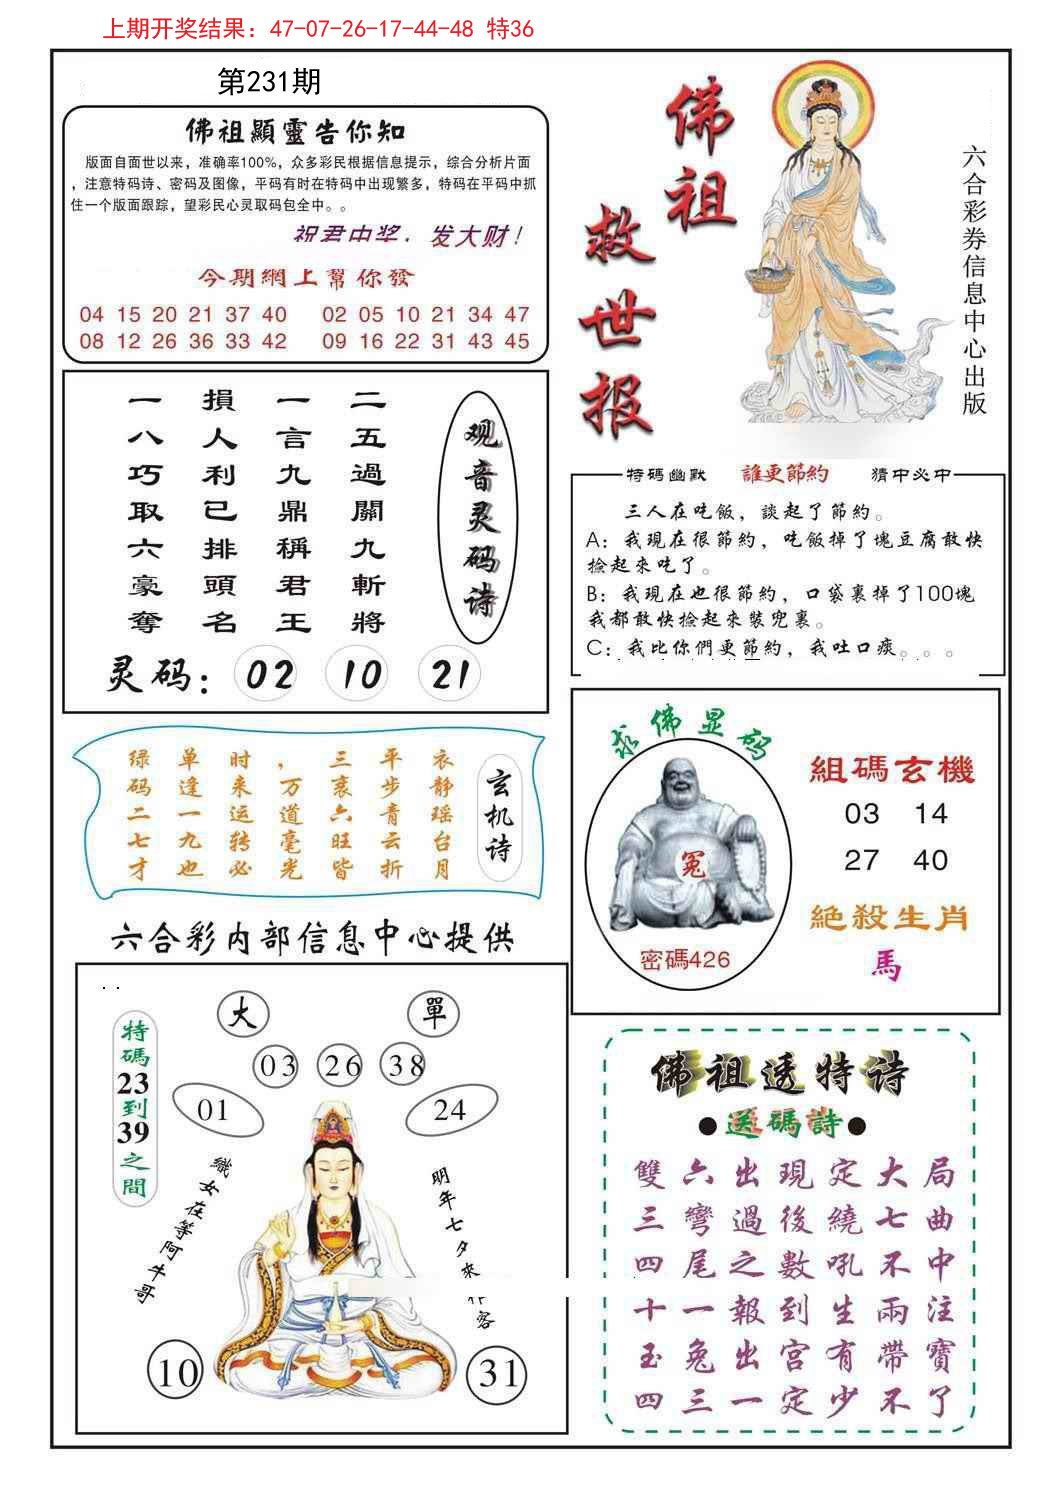 上期开奖结果：47-07-26-17-44-48 特36
第231期
佛祖顯靈告你知
版面自面世以来，准确率100%，众多彩民根据信息提示，综合分析片面
，注意特码诗、密码及图像，平码有时在特码中出现繁多，特码在平码中抓
住一个版面跟踪，望彩民心灵取码包全中。。
祝君中奖，发大财！
今期網上幫你發
04 15 20 21 37 40 02 05 10 21 34 47
08 12 26 36 33 42 09 16 22 31 43 45
佛祖
救世报
六合彩券信息中心出版
观音灵码诗
二五過關九斬將
一言九鼎稱君王
損人利已排頭名
一八巧取六豪奪
灵码：02 10 21
特碼幽默 誰更節約 猜中必中
三人在吃飯，談起了節約。
A：我現在很節約，吃飯掉了塊豆腐敢快
撿起來吃了。
B：我現在也很節約，口袋裏掉了100塊
我都敢快撿起來裝兜裏。
C：我比你們更節約，我吐口痰。。。
玄机诗
衣静瑶台月
平步青云折
三衰六旺皆
，万道毫光
时来运转必
单逢一九也
绿码二七才
求佛显码
冤
密碼426
組碼玄機
03 14
27 40
絕殺生肖
馬
六合彩内部信息中心提供
大 單
03 26 38
01 24
特碼23到39之間
織女在等阿牛哥
明年七夕來作客
10 31
佛祖透特诗
●送碼詩●
雙六出現定大局
三彎過後繞七曲
四尾之數吼不中
十一報到生兩注
玉兔出宮有帶寶
四三一定少不了